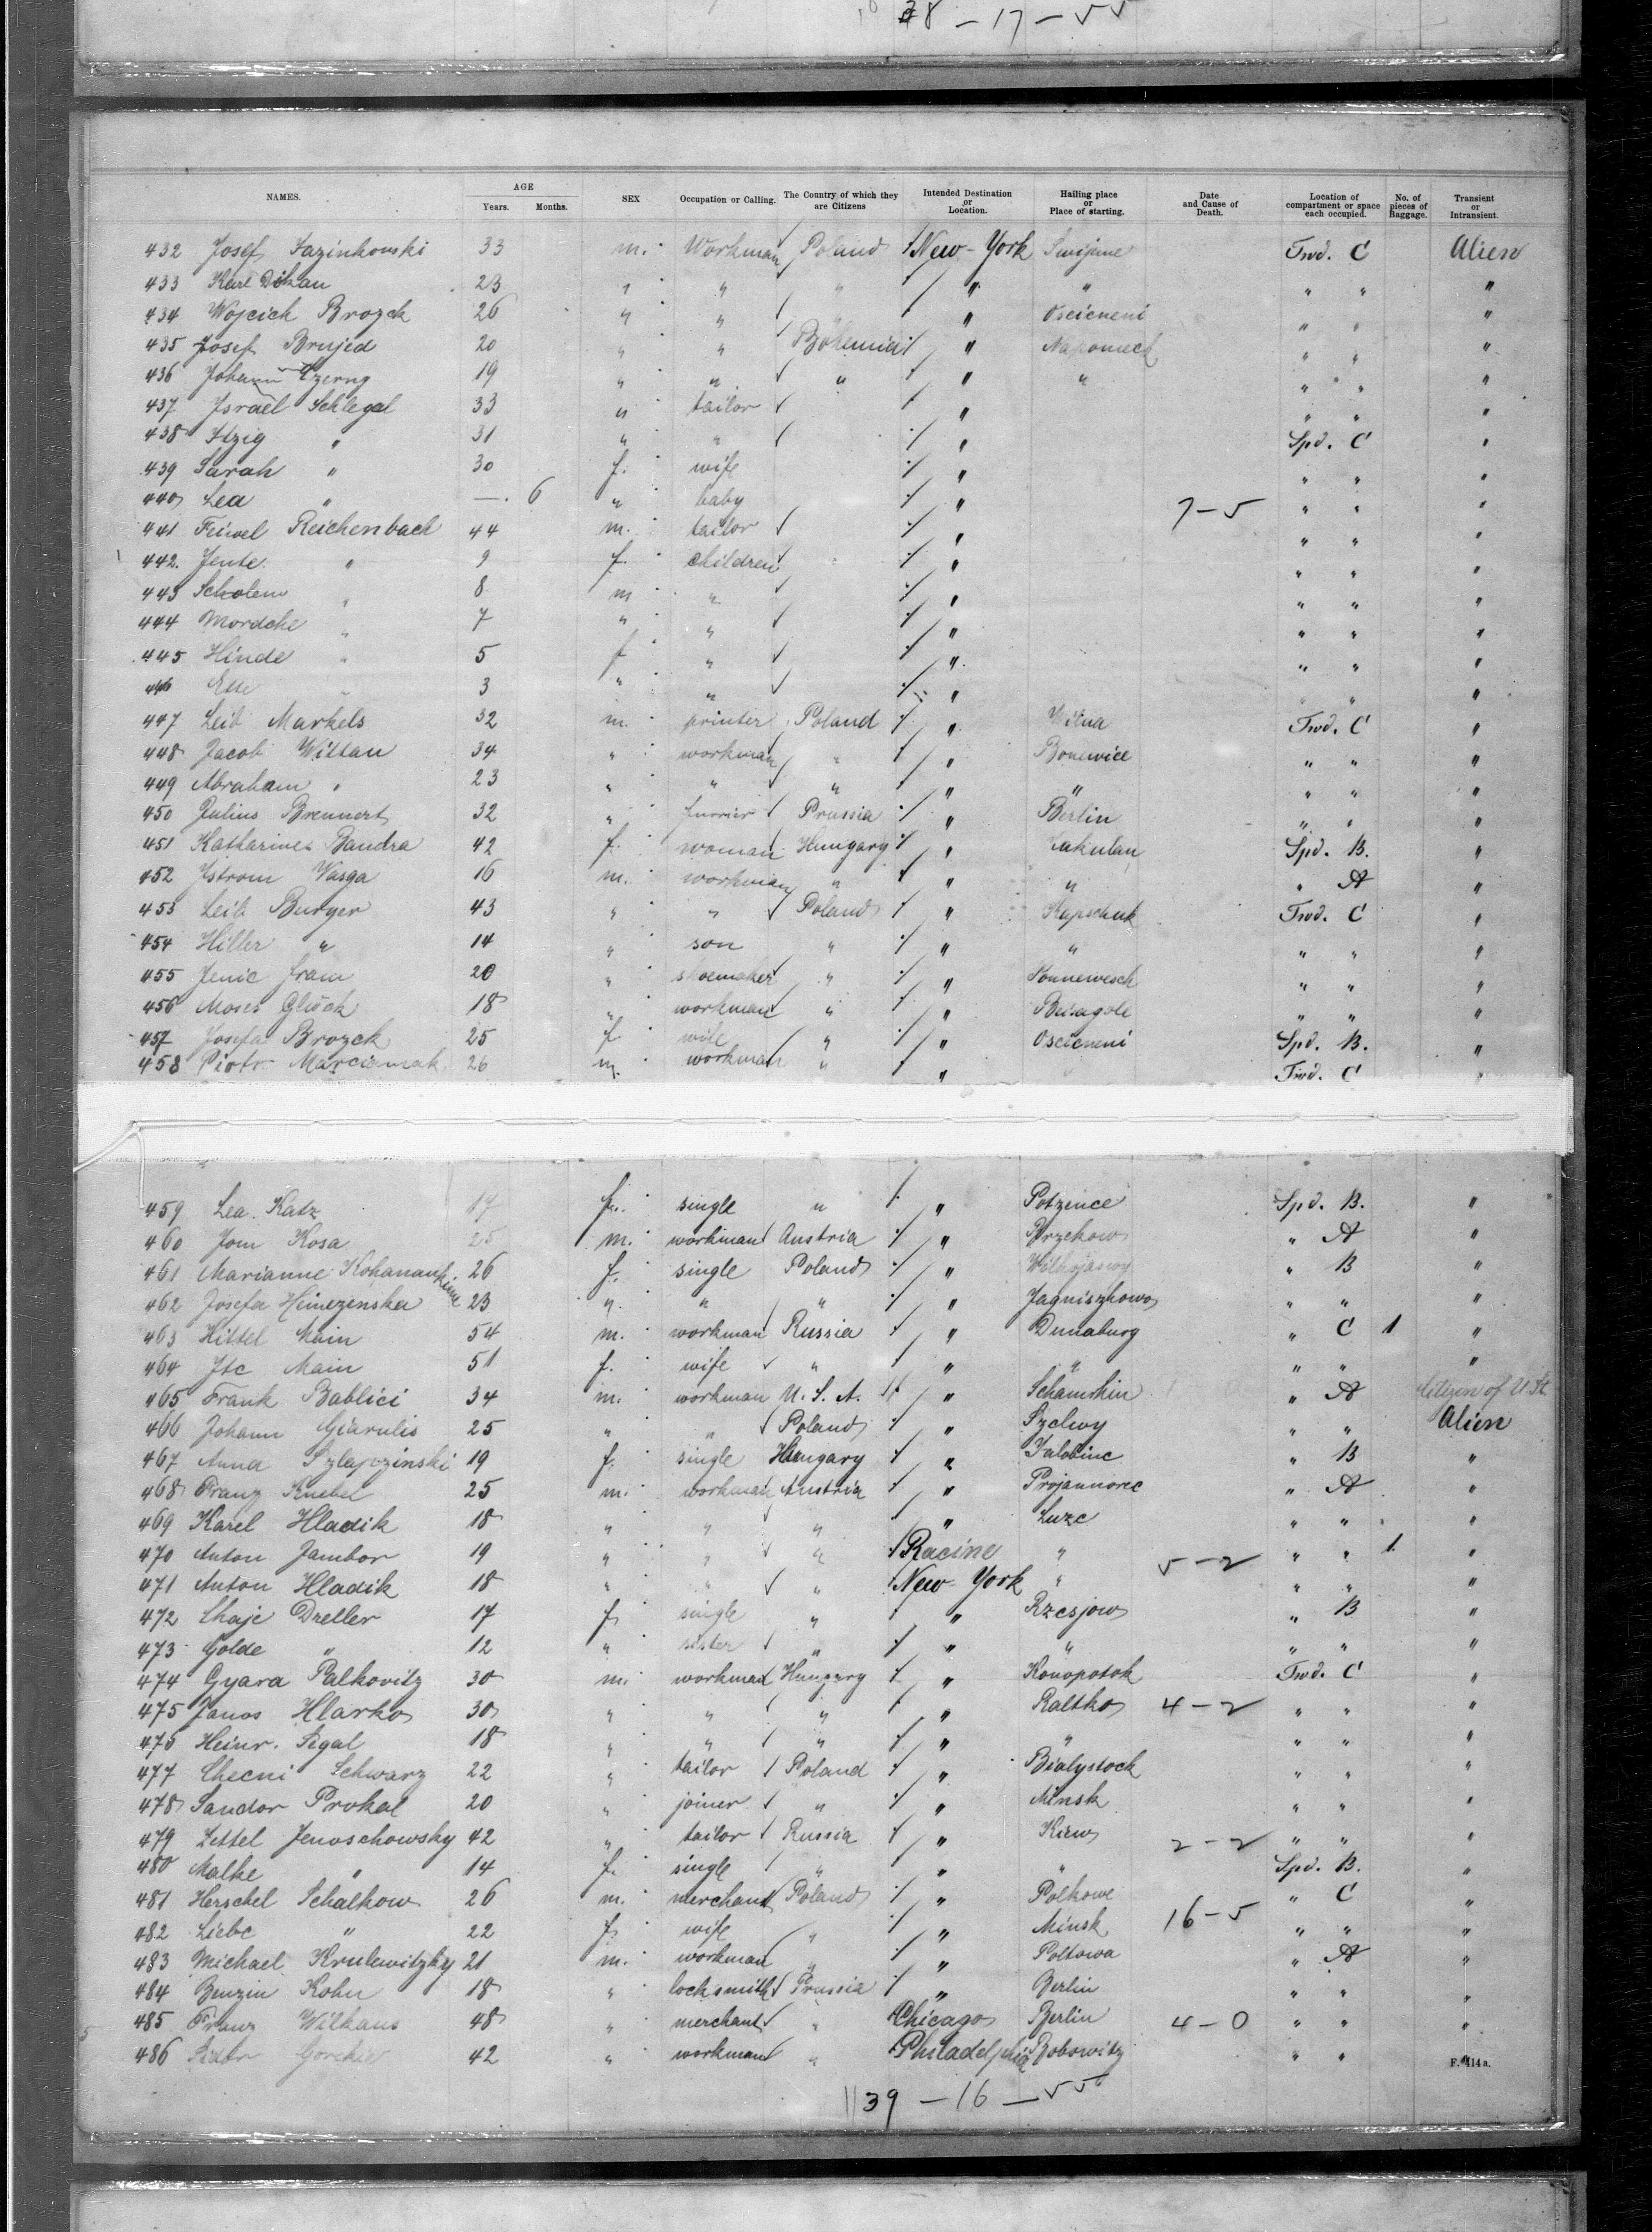 38 - 17 - 55
NAMES. AGE Years. Months. SEX Occupation or Calling. The Country of which they are Citizens Intended Destination or Location. Hailing place or Place of starting. Date and Cause of Death. Location of compartment or space each occupied. No. of pieces of Baggage. Transient or Intransient.
432 Josef Fazinkowski 33 m. Workman Poland New-York Fwd. C Alien
433 Karl 23 " " " " " " " "
434 Wojcich Brozek 26 " " " " Oscieneni " " "
435 Josef Brujed 20 " " Bohemia " Napomeck " " "
436 Johann Czerny 19 " " " " " " " "
437 Israel Schlegel 33 " tailor " " " "
438 Itzig " 31 " " " Spd. C "
439 Sarah " 30 f. wife " " " "
440 Lea " —. 6 " baby " 7-5 " " "
441 Feiwel Reichenbach 44 m. tailor " " " "
442. Jente " 9 f. children " " " "
443 Scholem " 8 m " " " " "
444 Mordche " 7 " " " " " "
445 Hinde " 5 f " " " " "
446 Ette " 3 " " " " " "
447 Leib Markels 32 m. printer Poland " Wilna Fwd. C "
448 Jacob Wittan 34 " workman " " Bonewice " " "
449 Abraham " 23 " " " " " " " "
450 Julius Brennert 32 " furrier Prussia " Berlin " " "
451 Katharine Bandra 42 f. woman Hungary " Zakulau Spd. B. "
452 Istrom Vasga 16 m. workman " " " " A "
453 Leib Burger 43 " " Poland " Kapschuk Fwd. C "
454 Hiller " 14 " son " " " " " "
455 Jenic Fram 20 " shoemaker " " Ponnewesch " " "
456 Moses Glück 18 " workman " " Beisagole " " "
457 Josefa Brozek 25 f. wife " " Oscieneni Spd. B. "
458 Piotr Marciniak 26 m. workman " " " Fwd. C "
459 Lea Katz 17 f. single " " Potzince Spd. B. "
460 Jom Kosa 25 m. workman Austria " Przekow " A "
461 Marianne 26 f. single Poland " " B "
462 Josefa Heinezenska 23 " " " " Jagniszhowo " " "
463 Kittel Main 54 m. workman Russia " Dunaburg " C 1 "
464 Itc Main 51 f. wife " " " " " "
465 Frank Bablici 34 m. workman U. S. A. " Schamkin " A Citizen of U St.
466 Johann Giarulis 25 " " Poland " Szelwy " " Alien
467 Anna Szlapzinski 19 f. single Hungary " Jalobinc " B "
468 Franz Knebel 25 m. workman Austria " Projannovec " A "
469 Karel Hladik 18 " " " " Luze " " "
470 Anton Jambor 19 " " " Racine " 5-2 " " 1 "
471 Anton Hladik 18 " " " New-York " " " "
472 Chaje Dreller 17 f. single " " Rzesjow " B "
473 Golde " 12 " sister " " " " " "
474 Gyara Palkovitz 30 m. workman Hungary " Konopotok Fwd. C "
475 Janos Hlarko 30 " " " " Raltko 4-2 " " "
475 Heinr. Segal 18 " " " " " " " "
477 Checni Schwarz 22 " tailor Poland " Bialystock " " "
478 Sandor Prokal 20 " joiner " " Minsk " " "
479 Zettel Jenoschowsky 42 " tailor Russia " Kiew 2-2 " " "
480 Malke " 14 f. single " " " Spd. B. "
481 Herschel Schalkow 26 m. merchant Poland " Polkowe " C "
482 Liebe " 22 f. wife " " Minsk 16-5 " " "
483 Michael Krulewitzky 21 m. workman " " Poltowa " A "
484 Benzin Kohn 18 " locksmith Prussia " Berlin " " "
485 Franz Wilkaus 48 " merchant " Chicago Berlin 4-0 " " "
486 Gorckie 42 " workman " Philadelphia Bobowitz " " "
F. 114a.
39 - 16 - 55